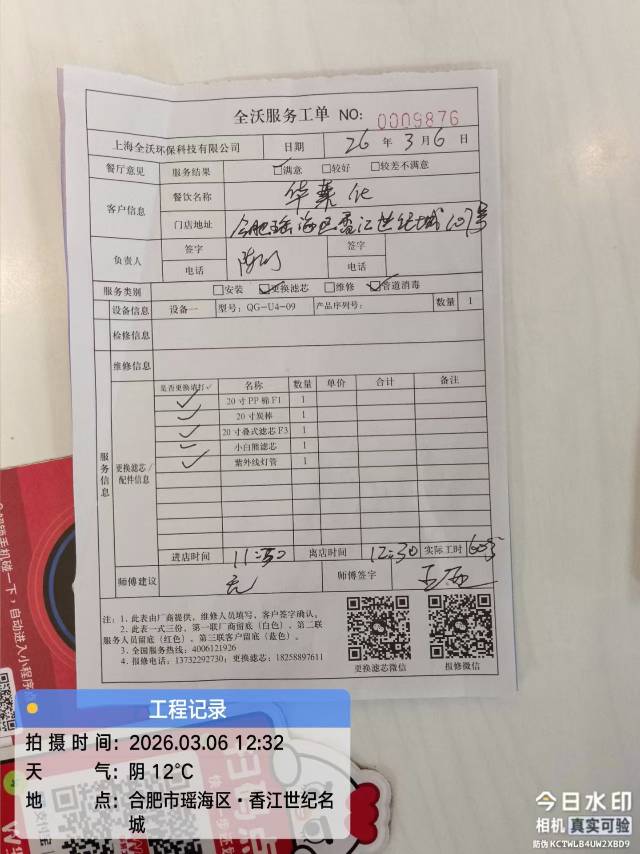 全沃服务工单 NO: 0009876
上海全沃环保科技有限公司 日期 26 年 3 月 6 日
餐厅意见 服务结果 ☑满意 □较好 □较差不满意
客户信息 餐饮名称 华莱仕
门店地址 合肥瑶海区香江世纪城107号
负责人 签字 签字
电话 电话
服务类别 □安装 ☑更换滤芯 □维修 ☑管道消毒
设备信息 设备一 型号: QG-U4-09 产品序列号: 数量 1
检修信息
维修信息
服务信息
更换滤芯/配件信息
是否更换请打✓ 名称 数量 单价 合计 备注
✓ 20寸PP棉F1 1
✓ 20寸炭棒 1
✓ 20寸叠式滤芯F3 1
✓ 小白熊滤芯 1
✓ 紫外线灯管 1
进店时间 11:30 离店时间 12:30 实际工时 60分
师傅建议 无 师傅签字
注: 1. 此表由厂商提供, 维修人员填写, 客户签字确认。
2. 此表一式三份, 第一联厂商留底 (白色)、第二联
服务人员留底 (红色)、第三联客户留底 (蓝色)。
3. 全国服务热线: 4006121926
4. 报修电话: 13732292730; 更换滤芯: 18258897611
更换滤芯微信 报修微信
手机碰一下, 自动进入小程序
工程记录
拍摄时间: 2026.03.06 12:32
天 气: 阴 12°C
地 点: 合肥市瑶海区·香江世纪名
城
今日水印
相机 真实可验
防伪 KCTWLB4UW2XBD9